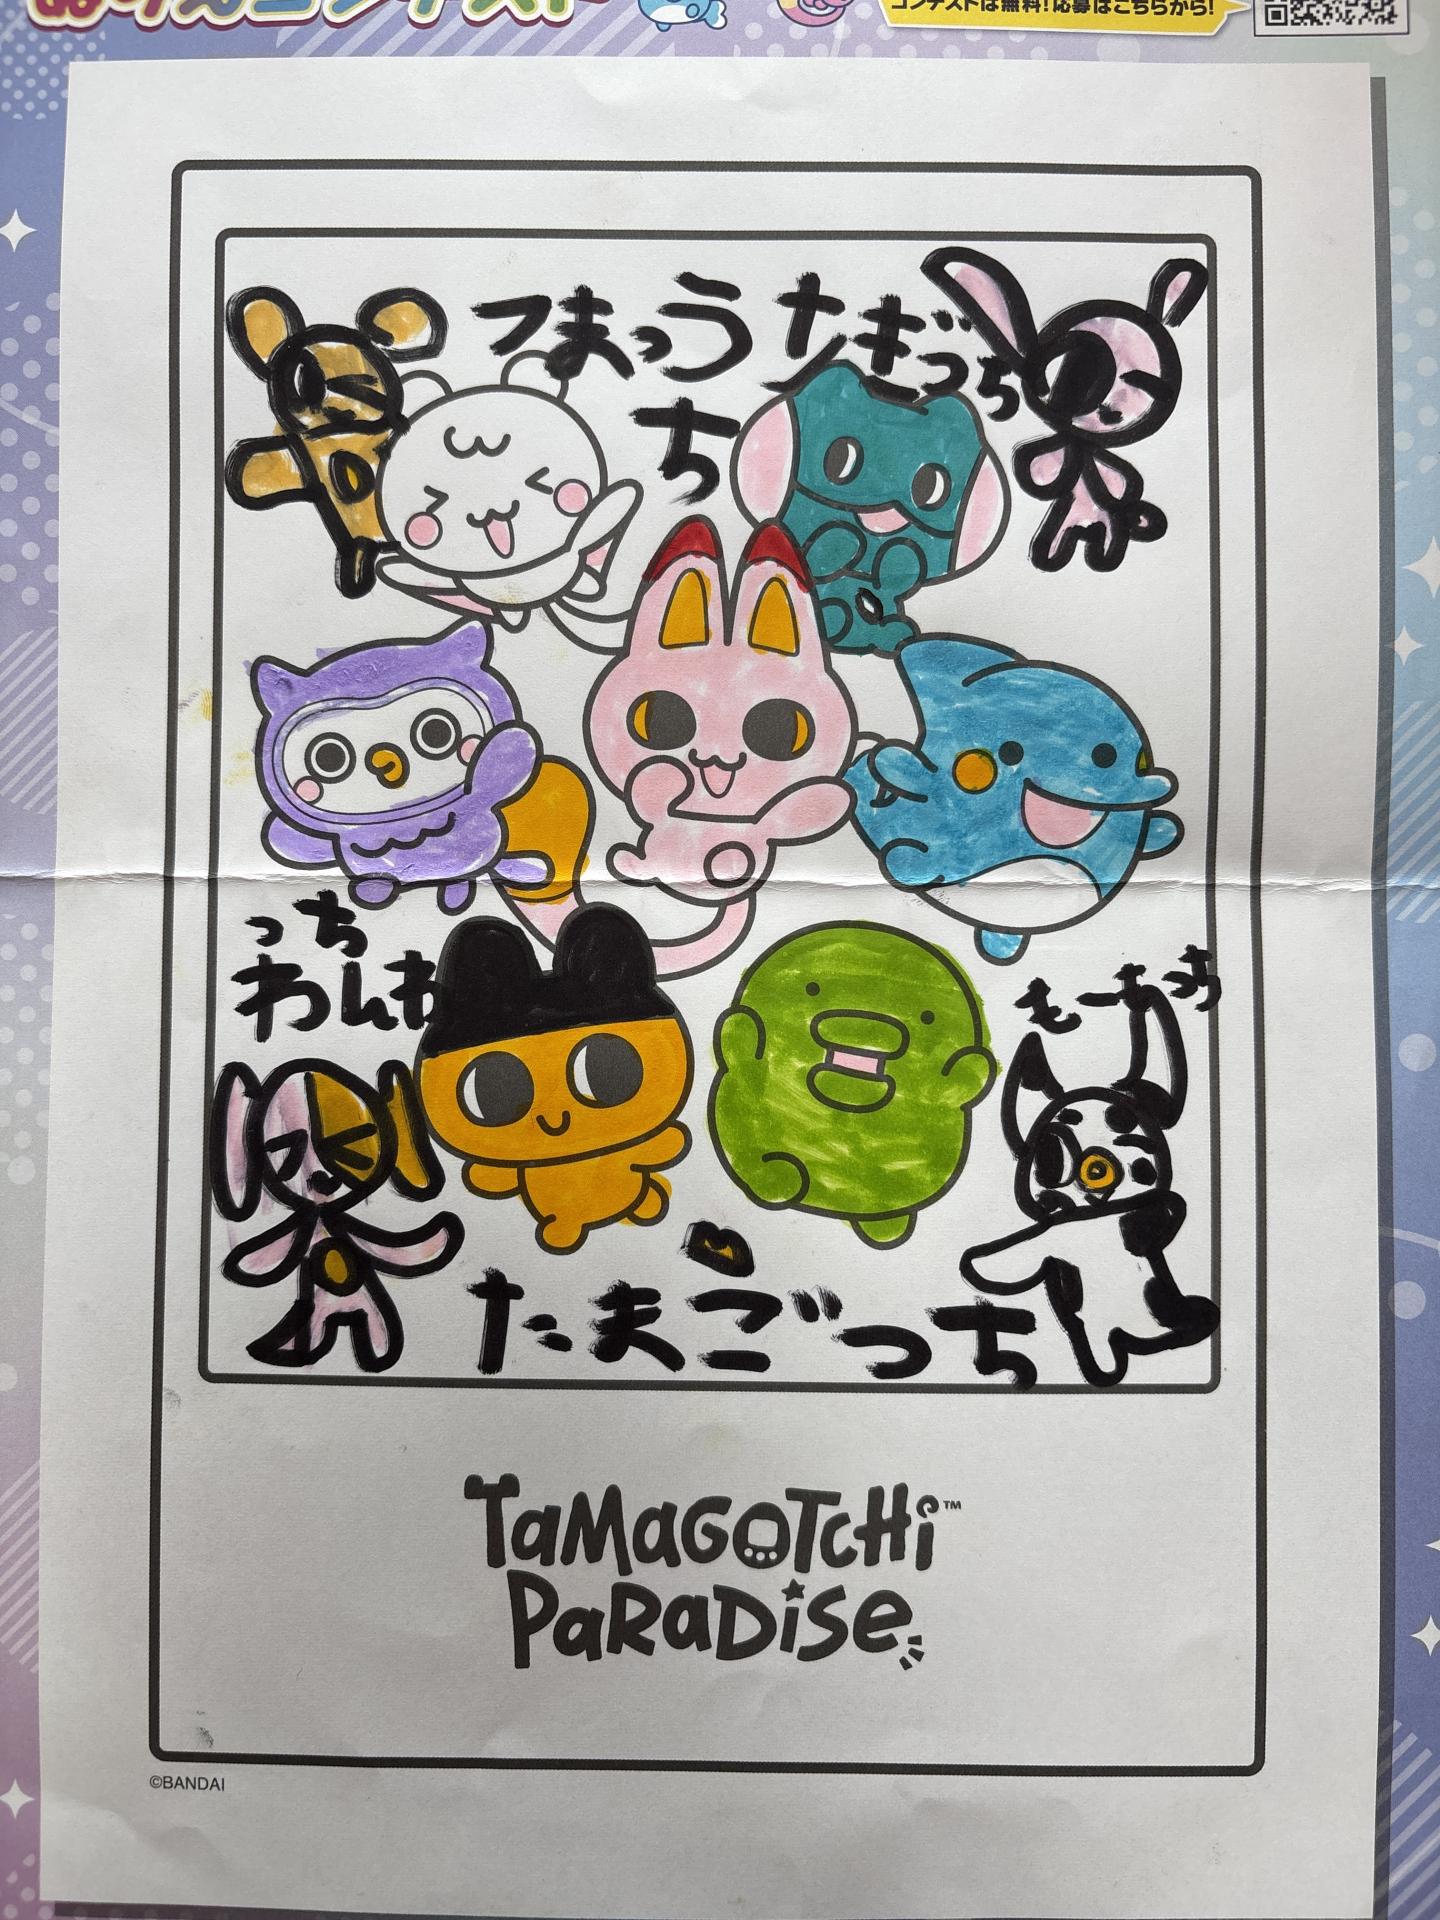 ぬりえコンテスト
コンテストは無料!応募はこちらから!
つまっう
ち
たぎっち
っち
わんわ
もーもっち
たまごっち
TaMaGOTCHi™
PaRaDiSe
©BANDAI